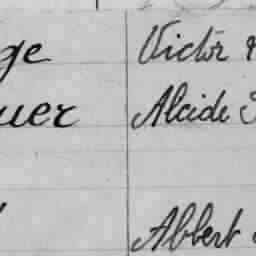 ge Victor
uer Alcide
Albert